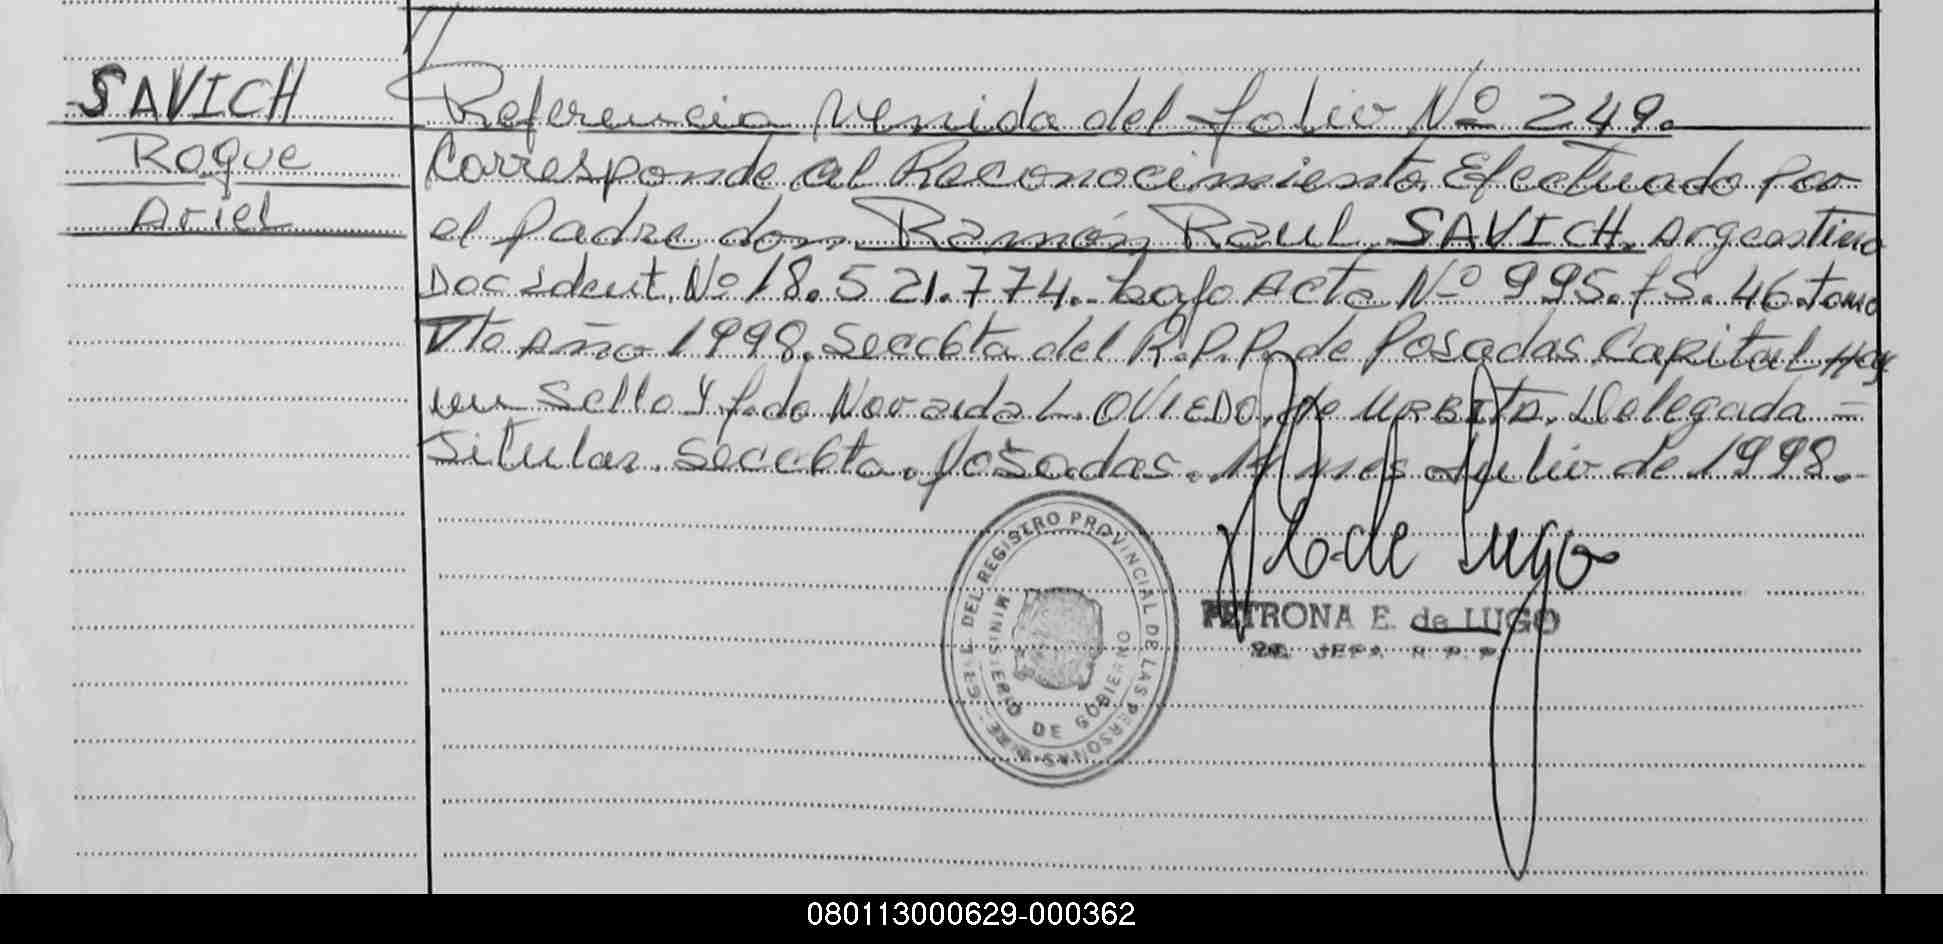 SAVICH
Roque
Ariel
Referencia Venida del folio Nº 249.
Corresponde al Reconocimiento Efectuado por
el padre don Ramón Raul SAVICH. Argentino
Doc Ident. Nº 18.521.774. bajo Acta Nº 995. fs. 46. tomo
Vto Año 1998. Secc6ta del R.P.P. de Posadas Capital Hay
un Sello Y f.do L. OVIEDO de URBITA. Delegada =
Titular. Secc6ta. Posadas. mes Julio de 1998.-
de Lugo
DEL REGISTRO PROVINCIAL DE LAS PERSONAS
MINISTERIO DE GOBIERNO
PETRONA E. de LUGO
JEFA R.P.P.
080113000629-000362